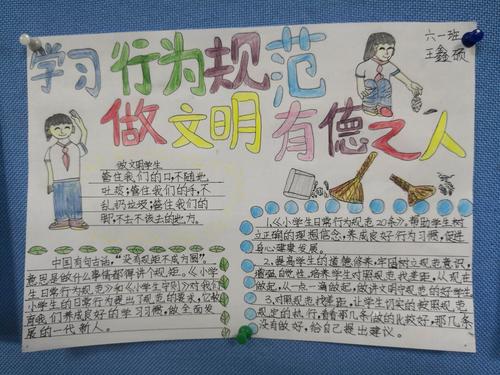 学习行为规范
六一班
王鑫硕
做文明有德之人
做文明学生
管住我们的口,不随地
吐痰;管住我们的手,不
乱扔垃圾;管住我们的
脚,不去不该去的地方。
中国有句古话,“没有规矩不成方圆”,
意思是做什么事情都得讲个规矩。《小学
生日常行为规范》和《小学生守则》对我们
小学生的日常行为提出了规范的要求,
直我们养成良好的学习习惯,做全面发
展的一代新人。
1.《小学生日常行为规范20条》,帮助学生树
立正确的理想信念,养成良好行为习惯,促进
身心健康发展。
2.提高学生的道德修养,牢固树立规范意识,
增强自觉性,培养学生对照规范找差距,从现在
做起,从点一滴做起,做讲文明守规范的好学生
3.对照规范找差距,让学生切实的按照规范
规定的执行,查看那几条做的比较好,那几条
没有做好,给自己提出建议。